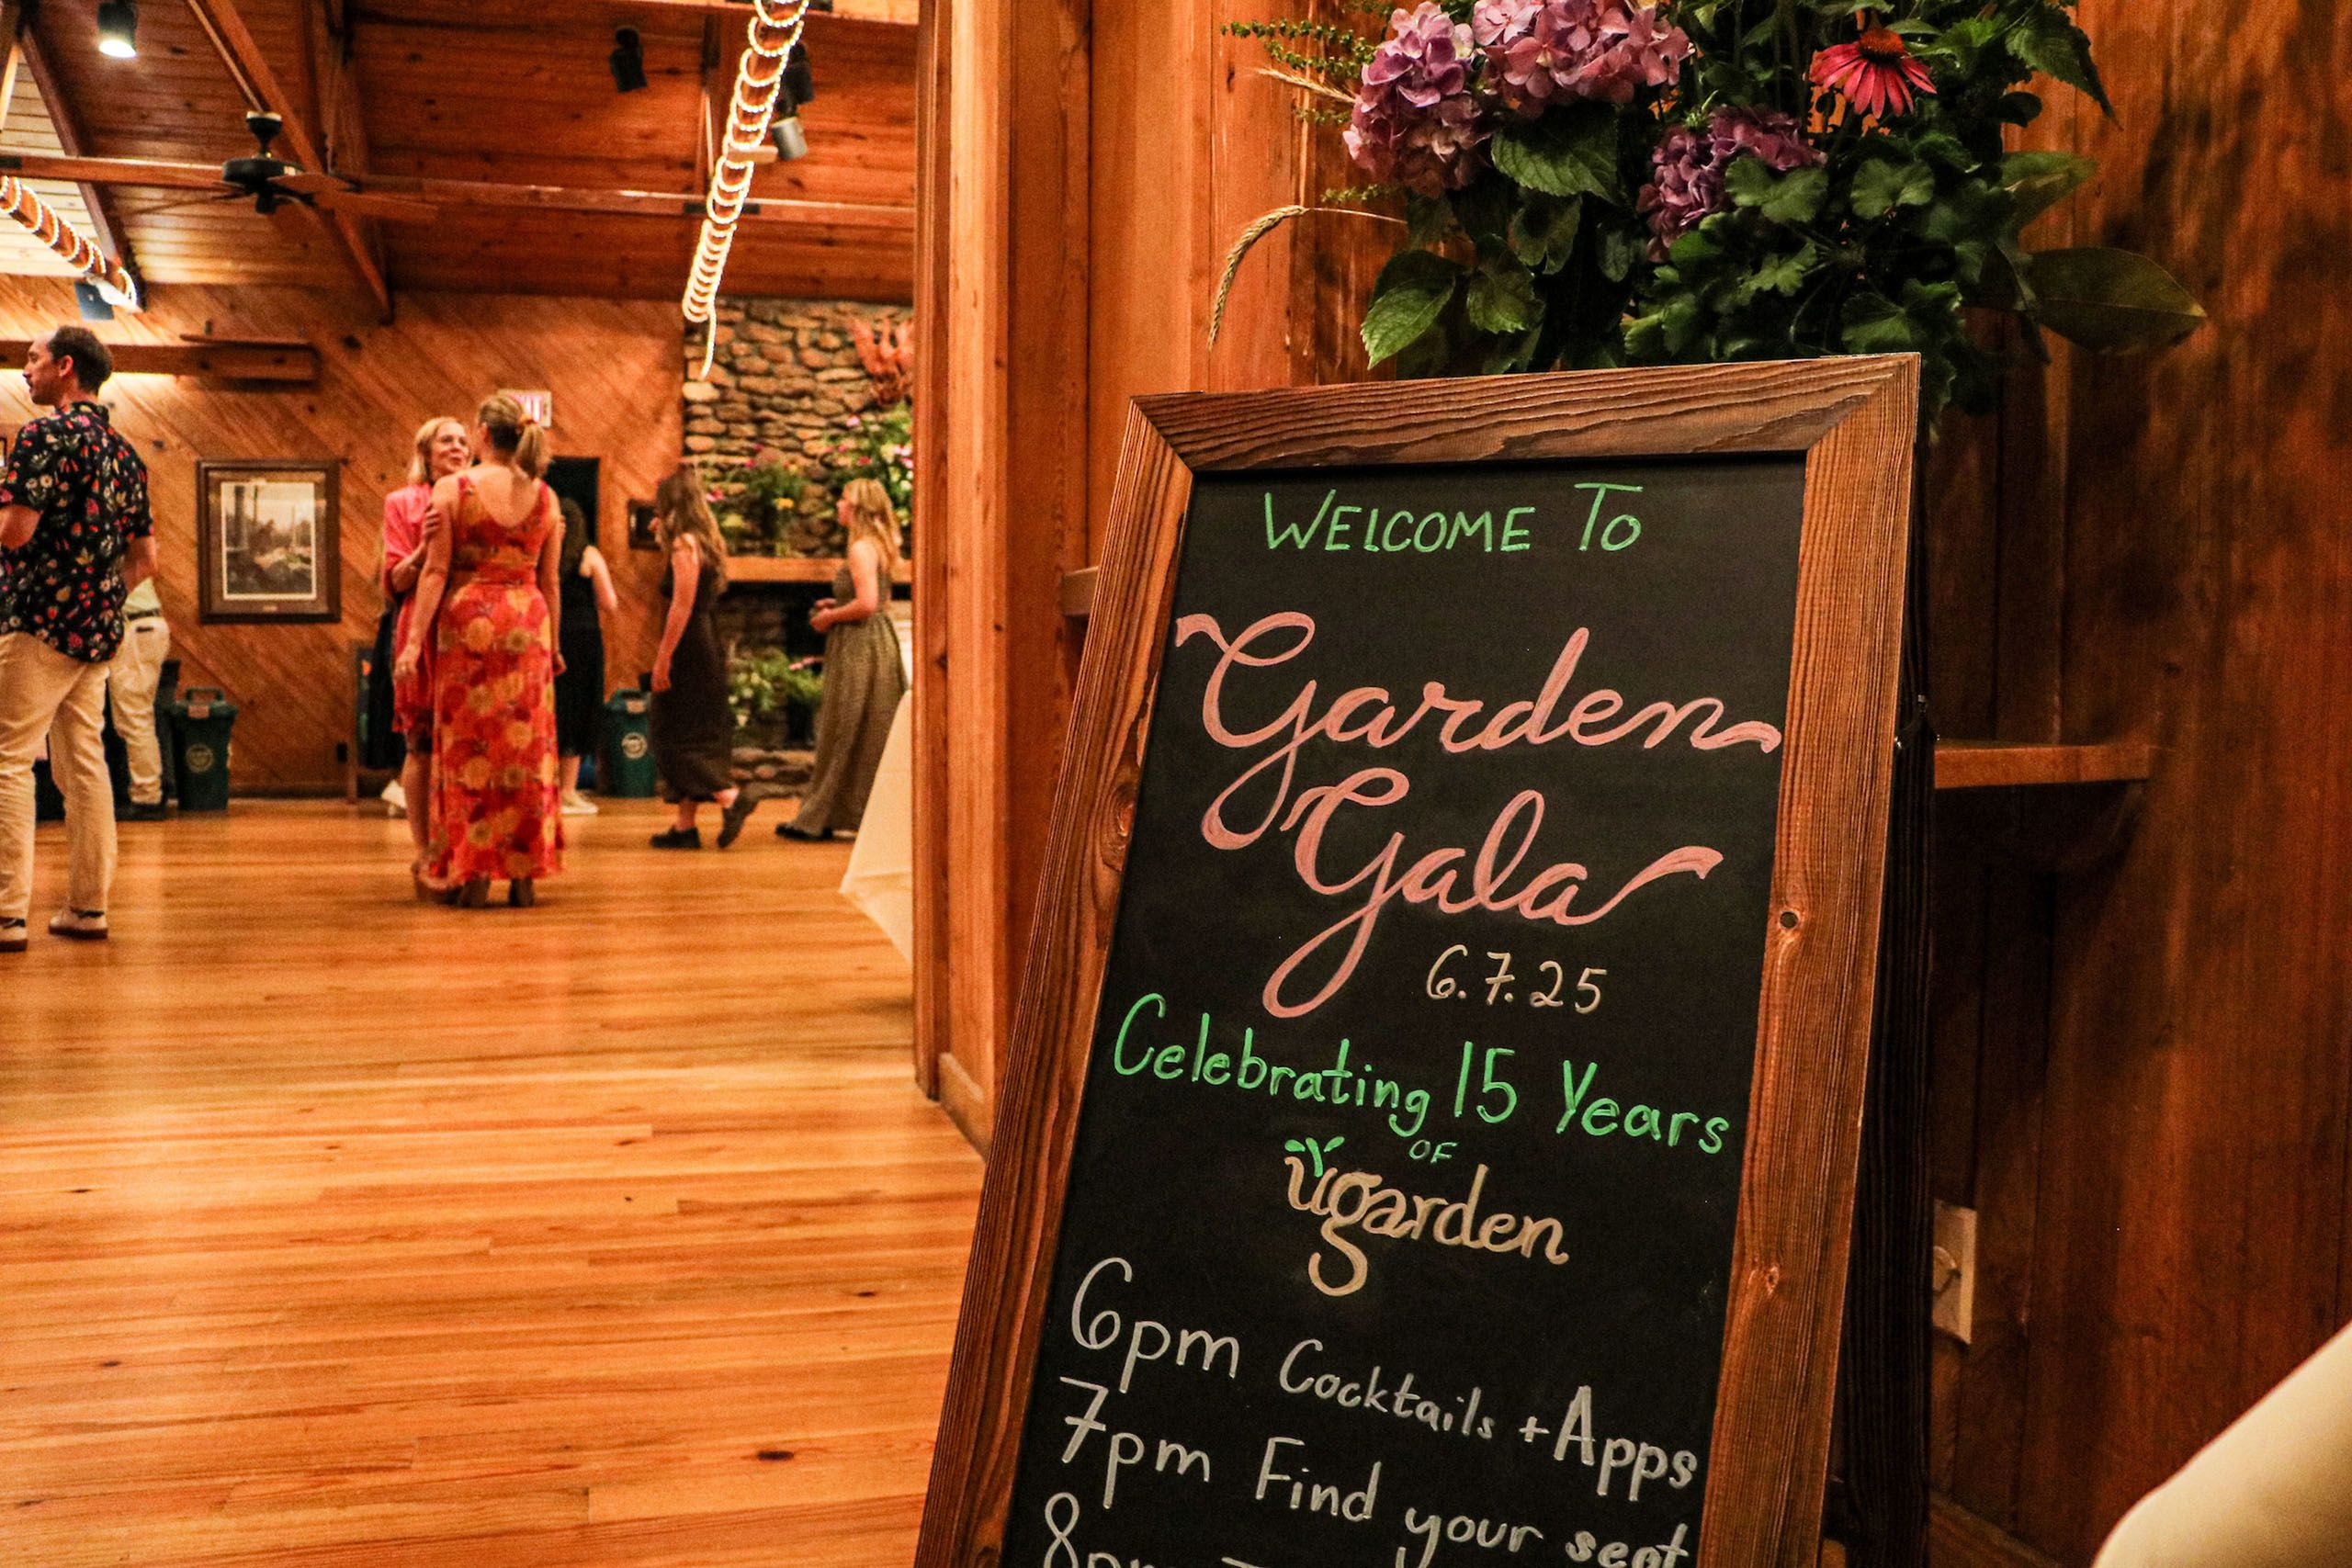 WELCOME TO
Garden
Gala
6.7.25
Celebrating 15 Years
OF
ugarden
6pm Cocktails + Apps
7pm Find your seat
8pm
EXIT